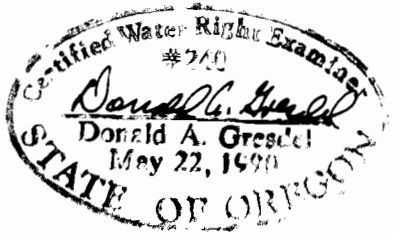 Certified Water Right Examiner
#240
Donald A. Gresdel
Donald A. Gresdel
May 22, 1990
STATE OF OREGON